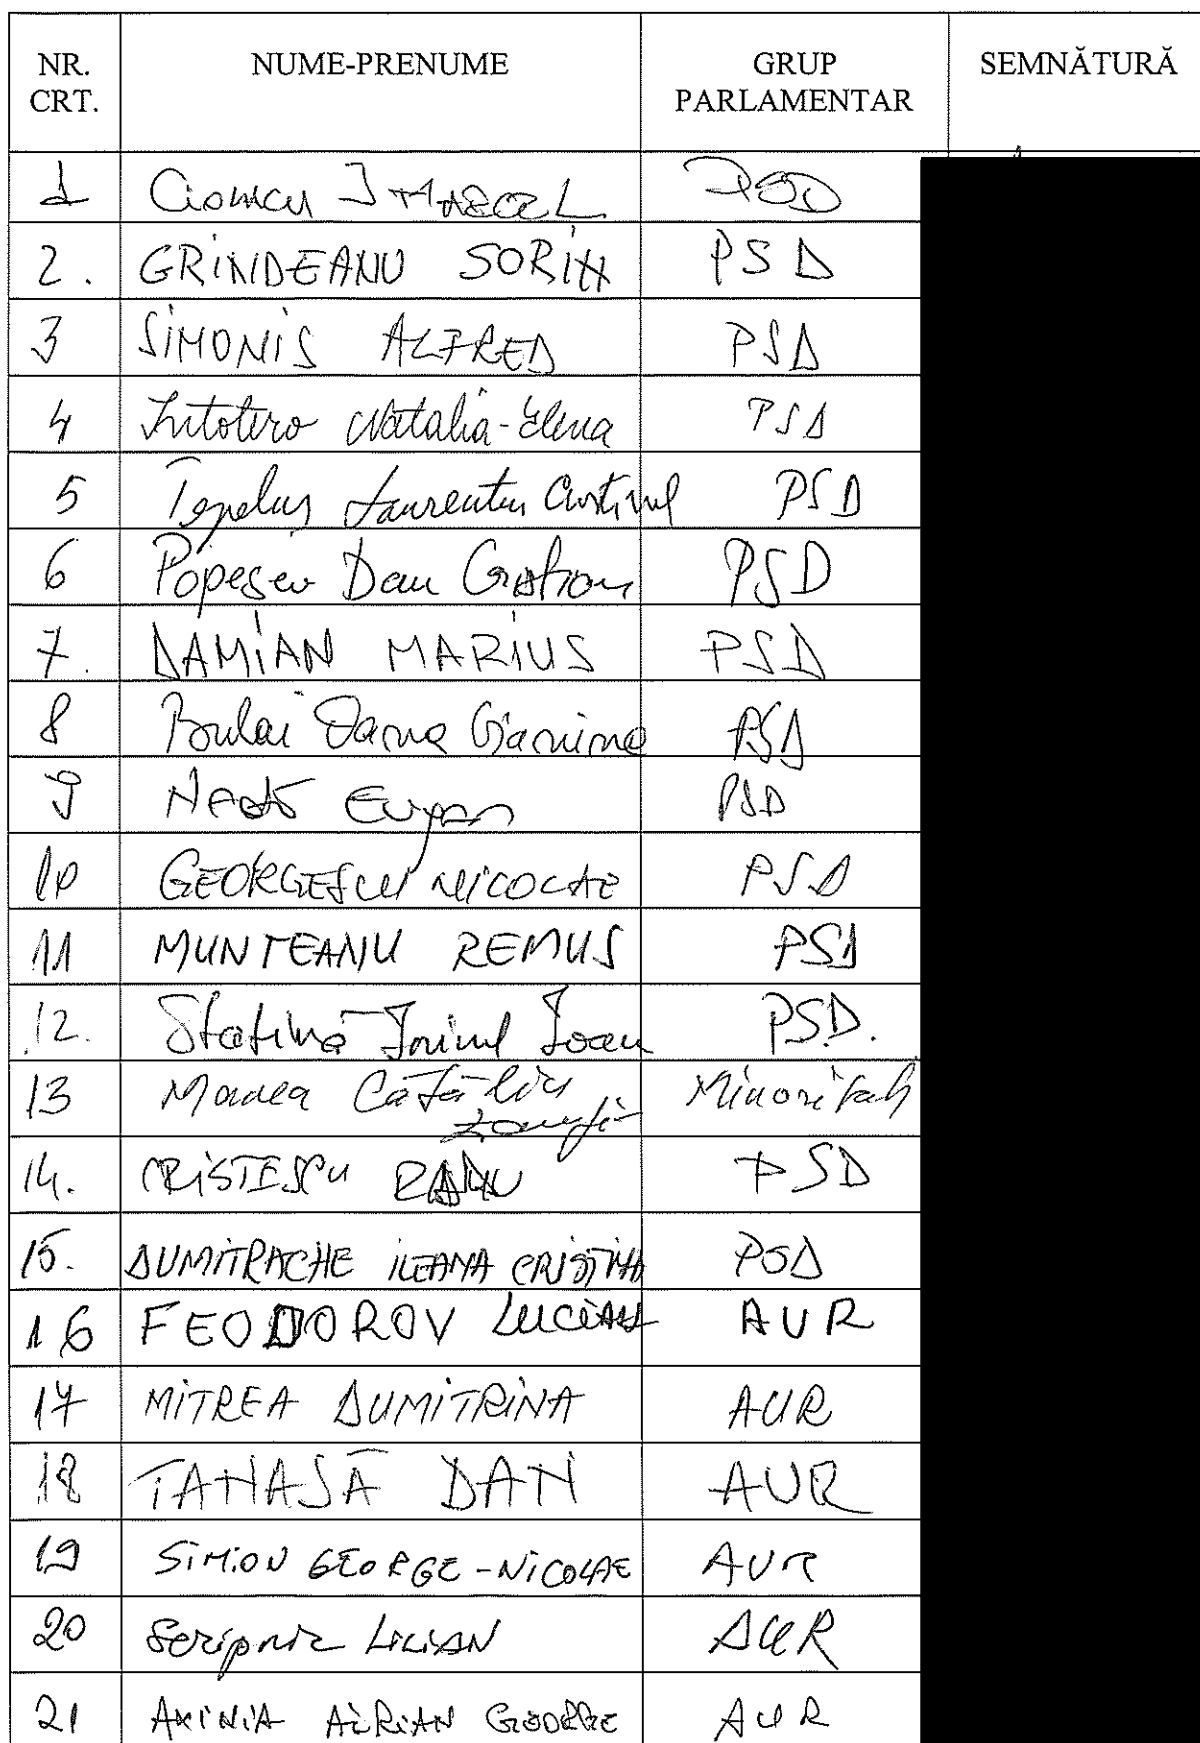 NR. CRT. NUME-PRENUME GRUP PARLAMENTAR SEMNĂTURĂ
1 Ciomcu PSD
2. GRINDEANU SORIN PSD
3 SIMONIS ALFRED PSD
4 Intotero Natalia-Elena PSD
5 Țepeluș Laurențiu Cristinel PSD
6 Popescu Dan Cristian PSD
7. DAMIAN MARIUS PSD
8 Bulai Oana Gianina PSD
9 Neață Eugen PSD
10 GEORGESCU NICOLAE PSD
11 MUNTEANU REMUS PSD
12. Statină Irinel Ioan PSD.
13 Manea Cătălin Minorități
Zamfir
14. CRISTESCU RADU PSD
15. DUMITRACHE ILEANA CRISTINA PSD
16 FEODOROV LUCIAN AUR
17 MITREA DUMITRINA AUR
18 TANASĂ DAN AUR
19 SIMION GEORGE-NICOLAE AUR
20 Scripnic LILIAN AUR
21 AXINIA ADRIAN GEORGE AUR